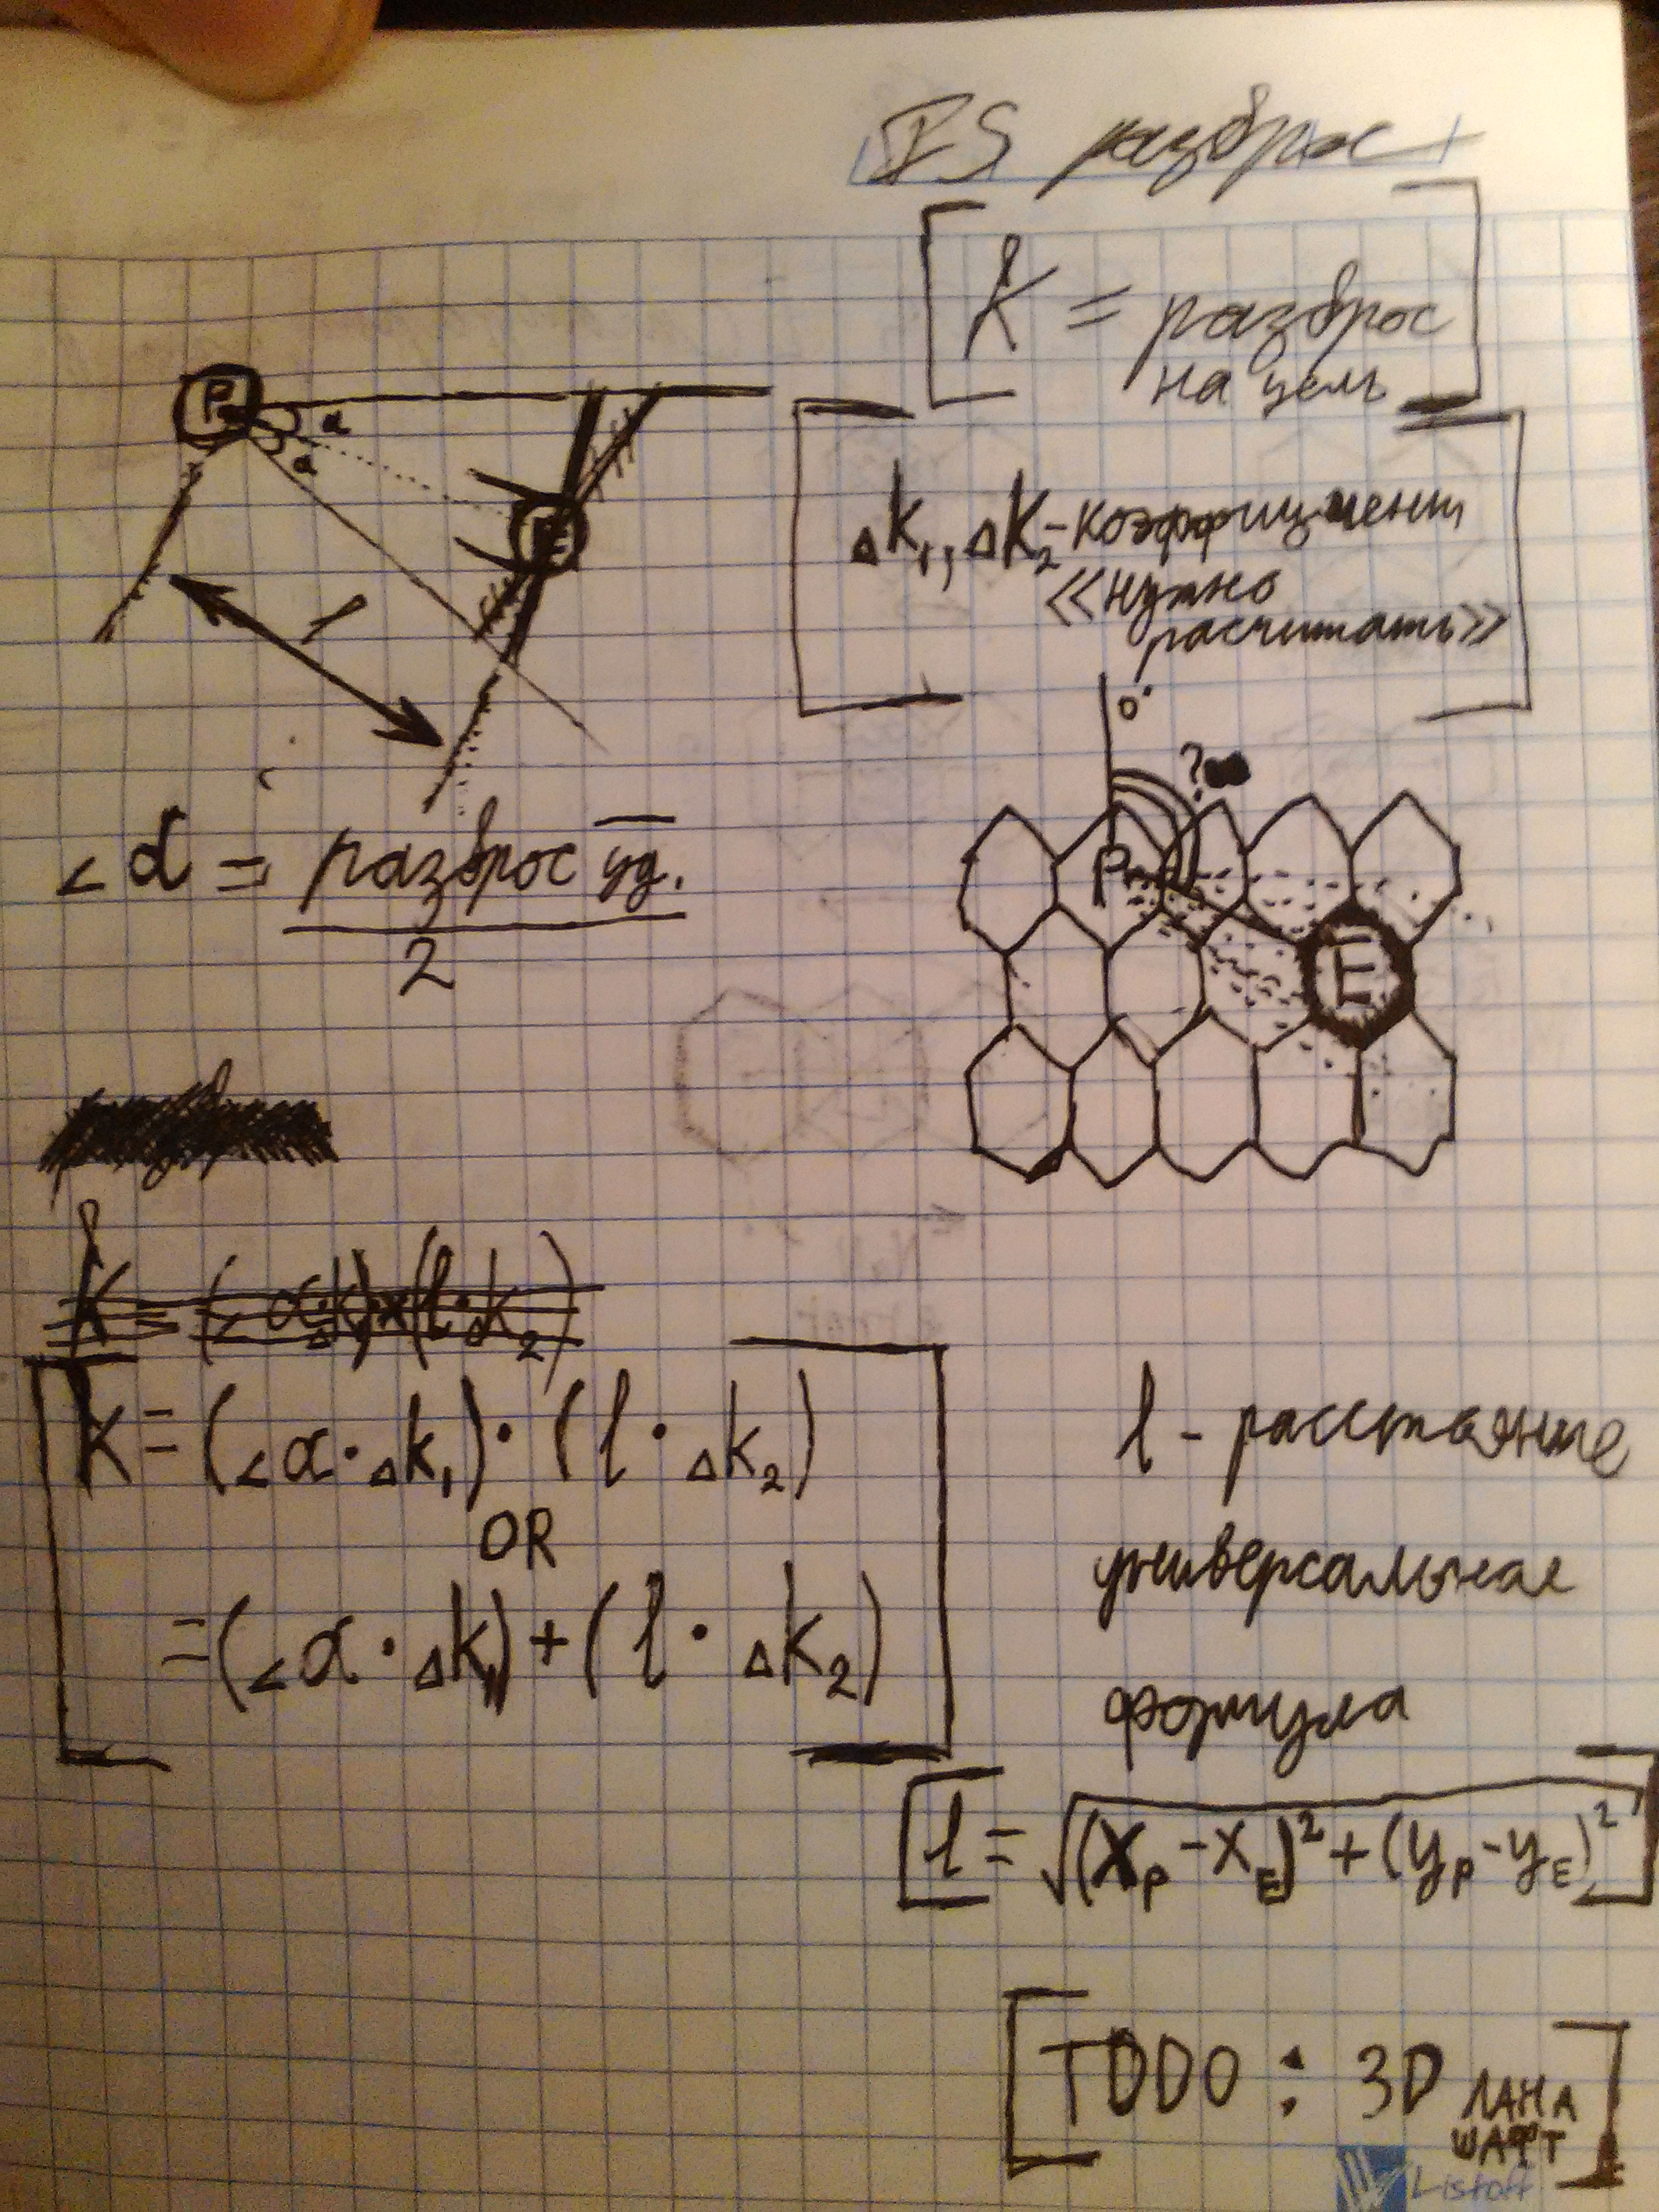 разброс
K = разброс
на цель
P
α
α
E
l
Δk₁, Δk₂ - коэффициенты
«нужно
расчитать»
0°
?
P
E
∠α = разброс уд.
2
K = (∠α·Δk₁)×(l·Δk₂)
K = (∠α · Δk₁) · (l · Δk₂)
OR
= (∠α · Δk₁) + (l · Δk₂)
l - расстояние
универсальная
формула
l = √(x_P - x_E)² + (y_P - y_E)²
TODO : 3D ЛАНД
ШАФТ
Listoff